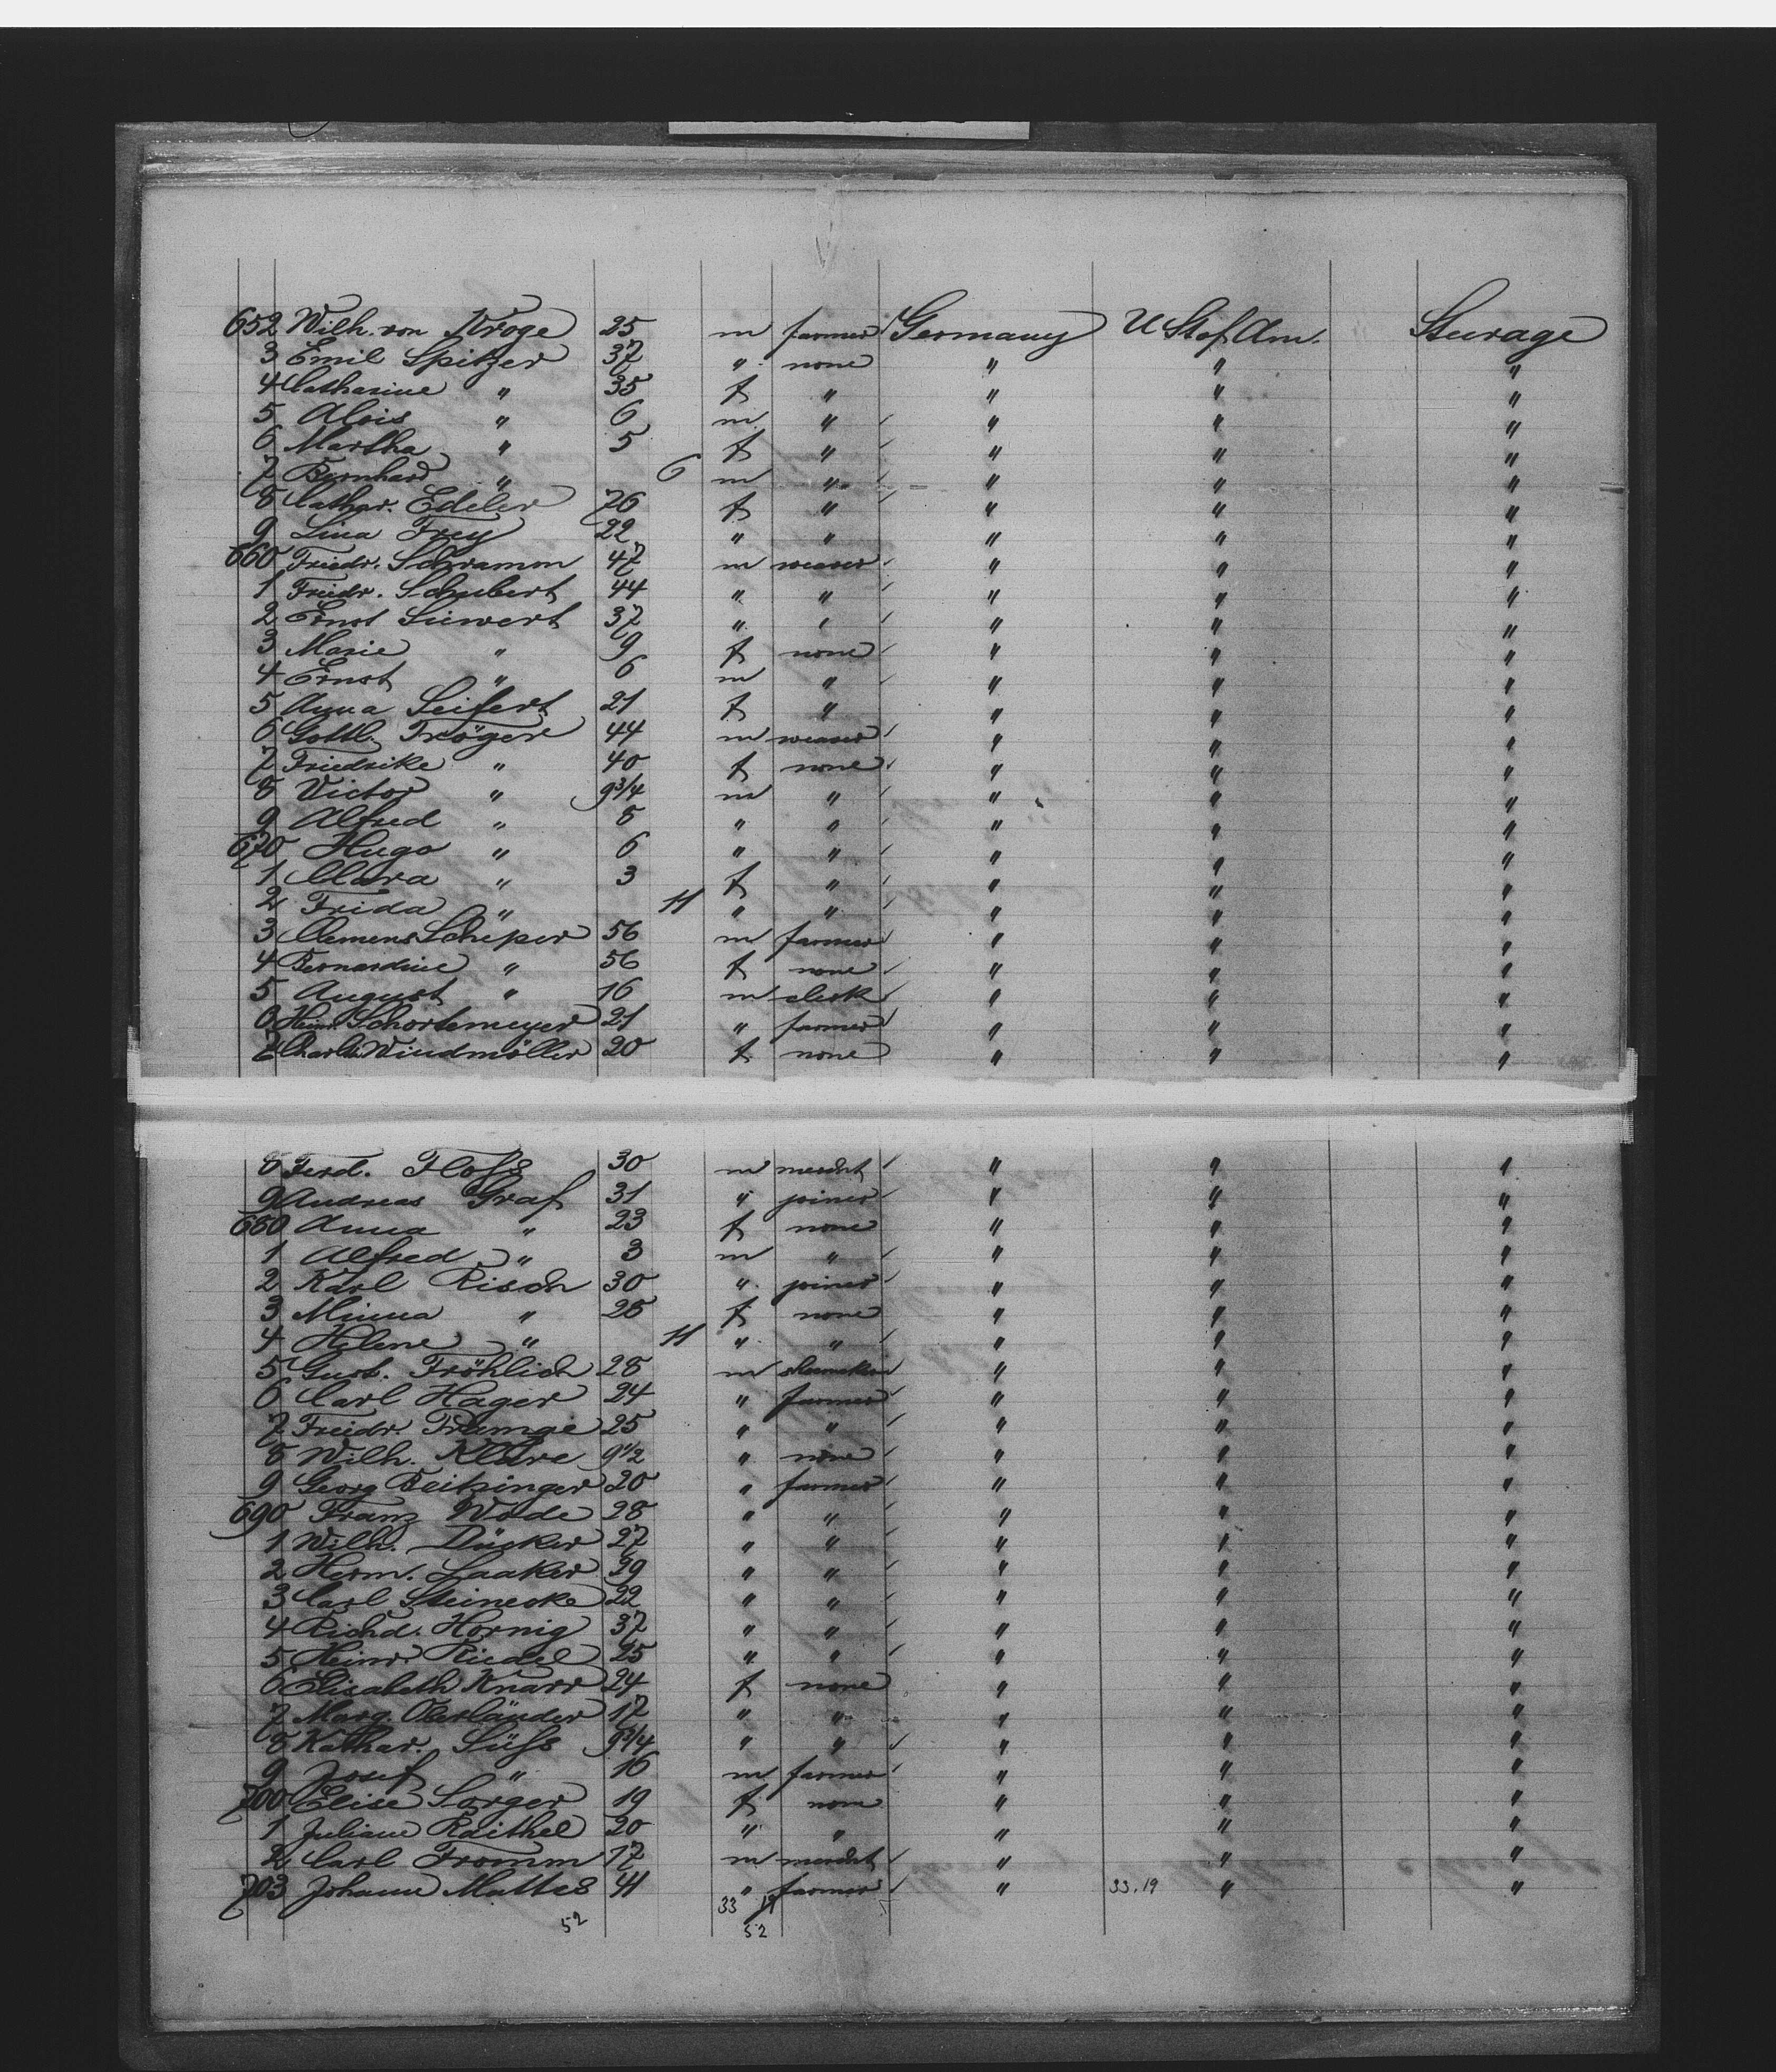 652 Wilh. von Kroge 25 m farmer Germany U St of Am. Steerage
3 Emil Spitzer 37 " none " " "
4 Catharine " 35 f " " " "
5 Alois " 6 m " " " "
6 Martha " 5 f " " " "
7 Bernhard " 6 m " " " "
8 Cathar. Edeler 76 f " " " "
9 Lina Frey 22 " " " " "
660 Friedr. Schramm 47 m weaver " " "
1 Friedr. Schubert 44 " " " " "
2 Ernst Siewert 37 " " " " "
3 Marie " 9 f none " " "
4 Ernst " 6 m " " " "
5 Anna Seifert 21 f " " " "
6 Gottl. Tröger 44 m weaver " " "
7 Friedrike " 40 f none " " "
8 Victor " 9 3/4 m " " " "
9 Alfred " 8 " " " " "
670 Hugo " 6 " " " " "
1 Clara " 3 f " " " "
2 Frida " 11 " " " " "
3 Clemens Scheper 56 m farmer " " "
4 Bernardine " 56 f none " " "
5 August " 16 m clerk " " "
6 Heinr. Schortemeyer 21 " farmer " " "
7 Windmöller 20 f none " " "
8 Ferd. Floss 30 m mercht " " "
9 Andreas Graf 31 " joiner " " "
680 Anna " 23 f none " " "
1 Alfred " 3 m " " " "
2 Karl Risch 30 " joiner " " "
3 Minna " 28 f none " " "
4 Helene " 11 " " " " "
5 Gust. Fröhlich 28 m " " "
6 Carl Hager 24 " farmer " " "
7 Friedr. 25 " " " " "
8 Wilh. Klare 9 1/2 " none " " "
9 Georg Beitzinger 20 " farmer " " "
690 Franz Wode 28 " " " " "
1 Wilh. Dücker 27 " " " " "
2 Herm. Laaker 29 " " " " "
3 Carl Steinecke 22 " " " " "
4 Richd. Hornig 37 " " " " "
5 Heinr. Riedel 25 " " " " "
6 Elisabeth Knarr 24 f none " " "
7 Marg. Oberländer 17 " " " " "
8 Kathar. Süss 9 3/4 " " " " "
9 Josef " 16 m farmer " " "
700 Elise Sorger 19 f none " " "
1 Juliane Raithel 20 " " " " "
2 Carl Fromm 17 m mercht " " "
703 Johann Mattes 41 " farmer " 33.19 " "
33 19
52 52